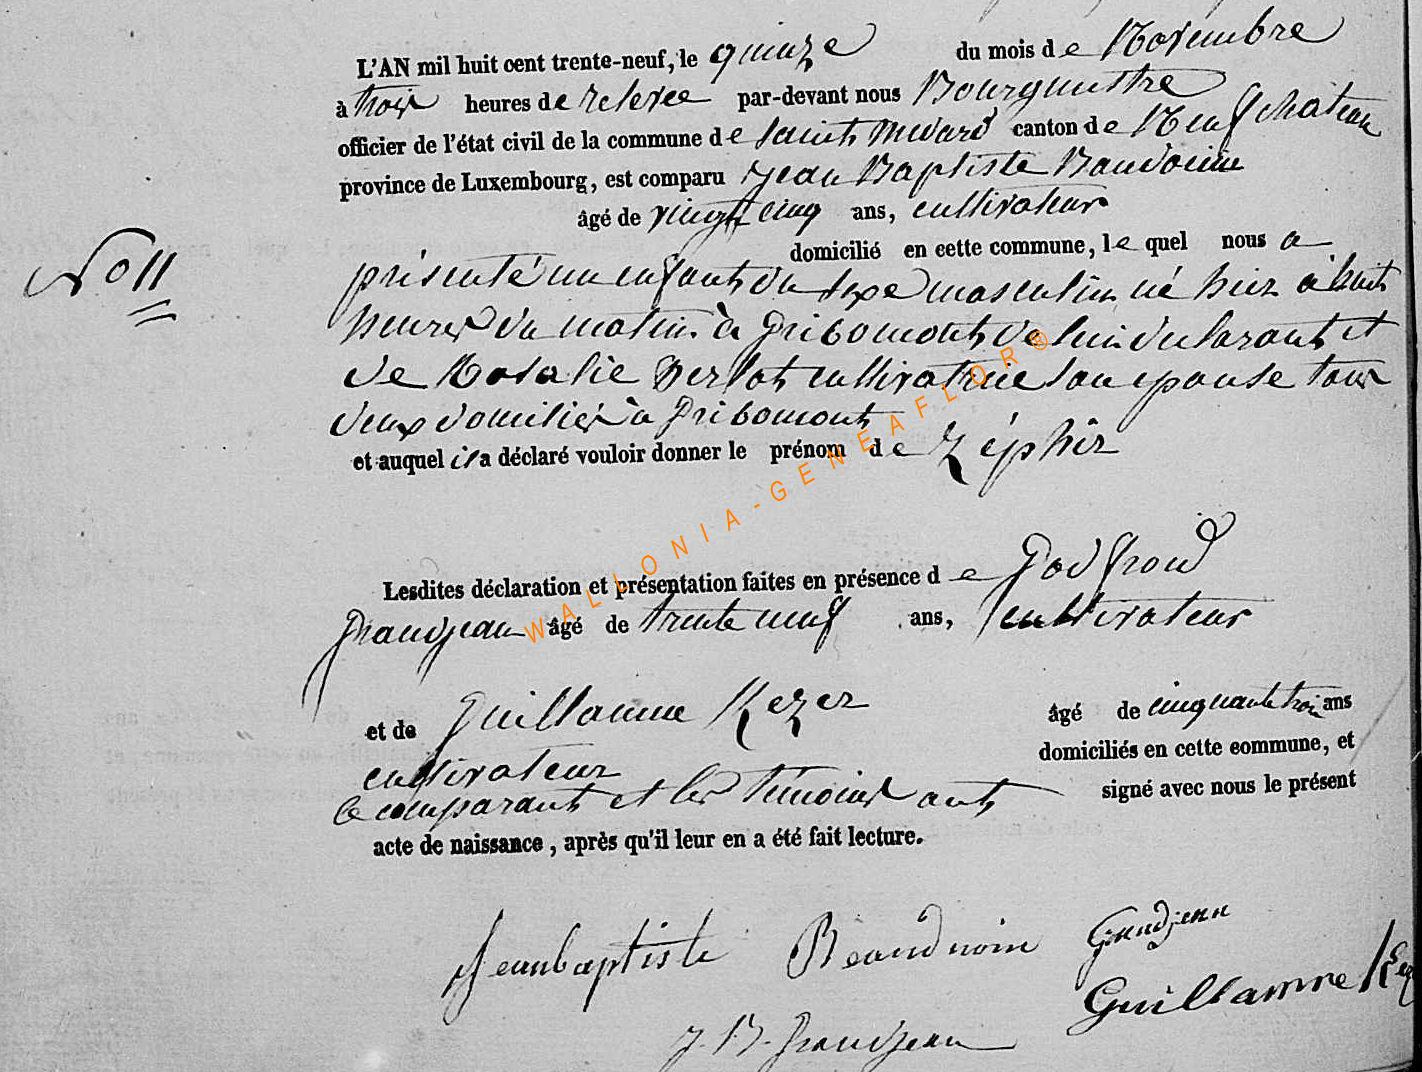 L'AN mil huit cent trente-neuf, le quinze du mois de Novembre
à trois heures de relevée par-devant nous Bourguestre
officier de l'état civil de la commune de Saint Médard canton de Neufchateau
province de Luxembourg, est comparu Jean Baptiste Baudoin
âgé de vingt cinq ans, cultivateur
domicilié en cette commune, le quel nous a
No 11
présenté un enfant du sexe masculin né hier à huit
heures du matin à Gribomont de lui déclarant et
de Rosalie Herbot cultivatrice son epouse tous
deux domiciliés à Gribomont
et auquel il a déclaré vouloir donner le prénom de Zéphir
Lesdites déclaration et présentation faites en présence de Godfroid
Grandjean âgé de trente neuf ans, cultivateur
et de Guillaume Kezer âgé de cinquante trois ans
cultivateur domiciliés en cette commune, et
le comparant et les témoins ont signé avec nous le présent
acte de naissance, après qu'il leur en a été fait lecture.
Jeanbaptiste Beauduoin Grandjean
Guillamme Kez
J. B. Grandjean
WALLONIA-GENEAFLOR®